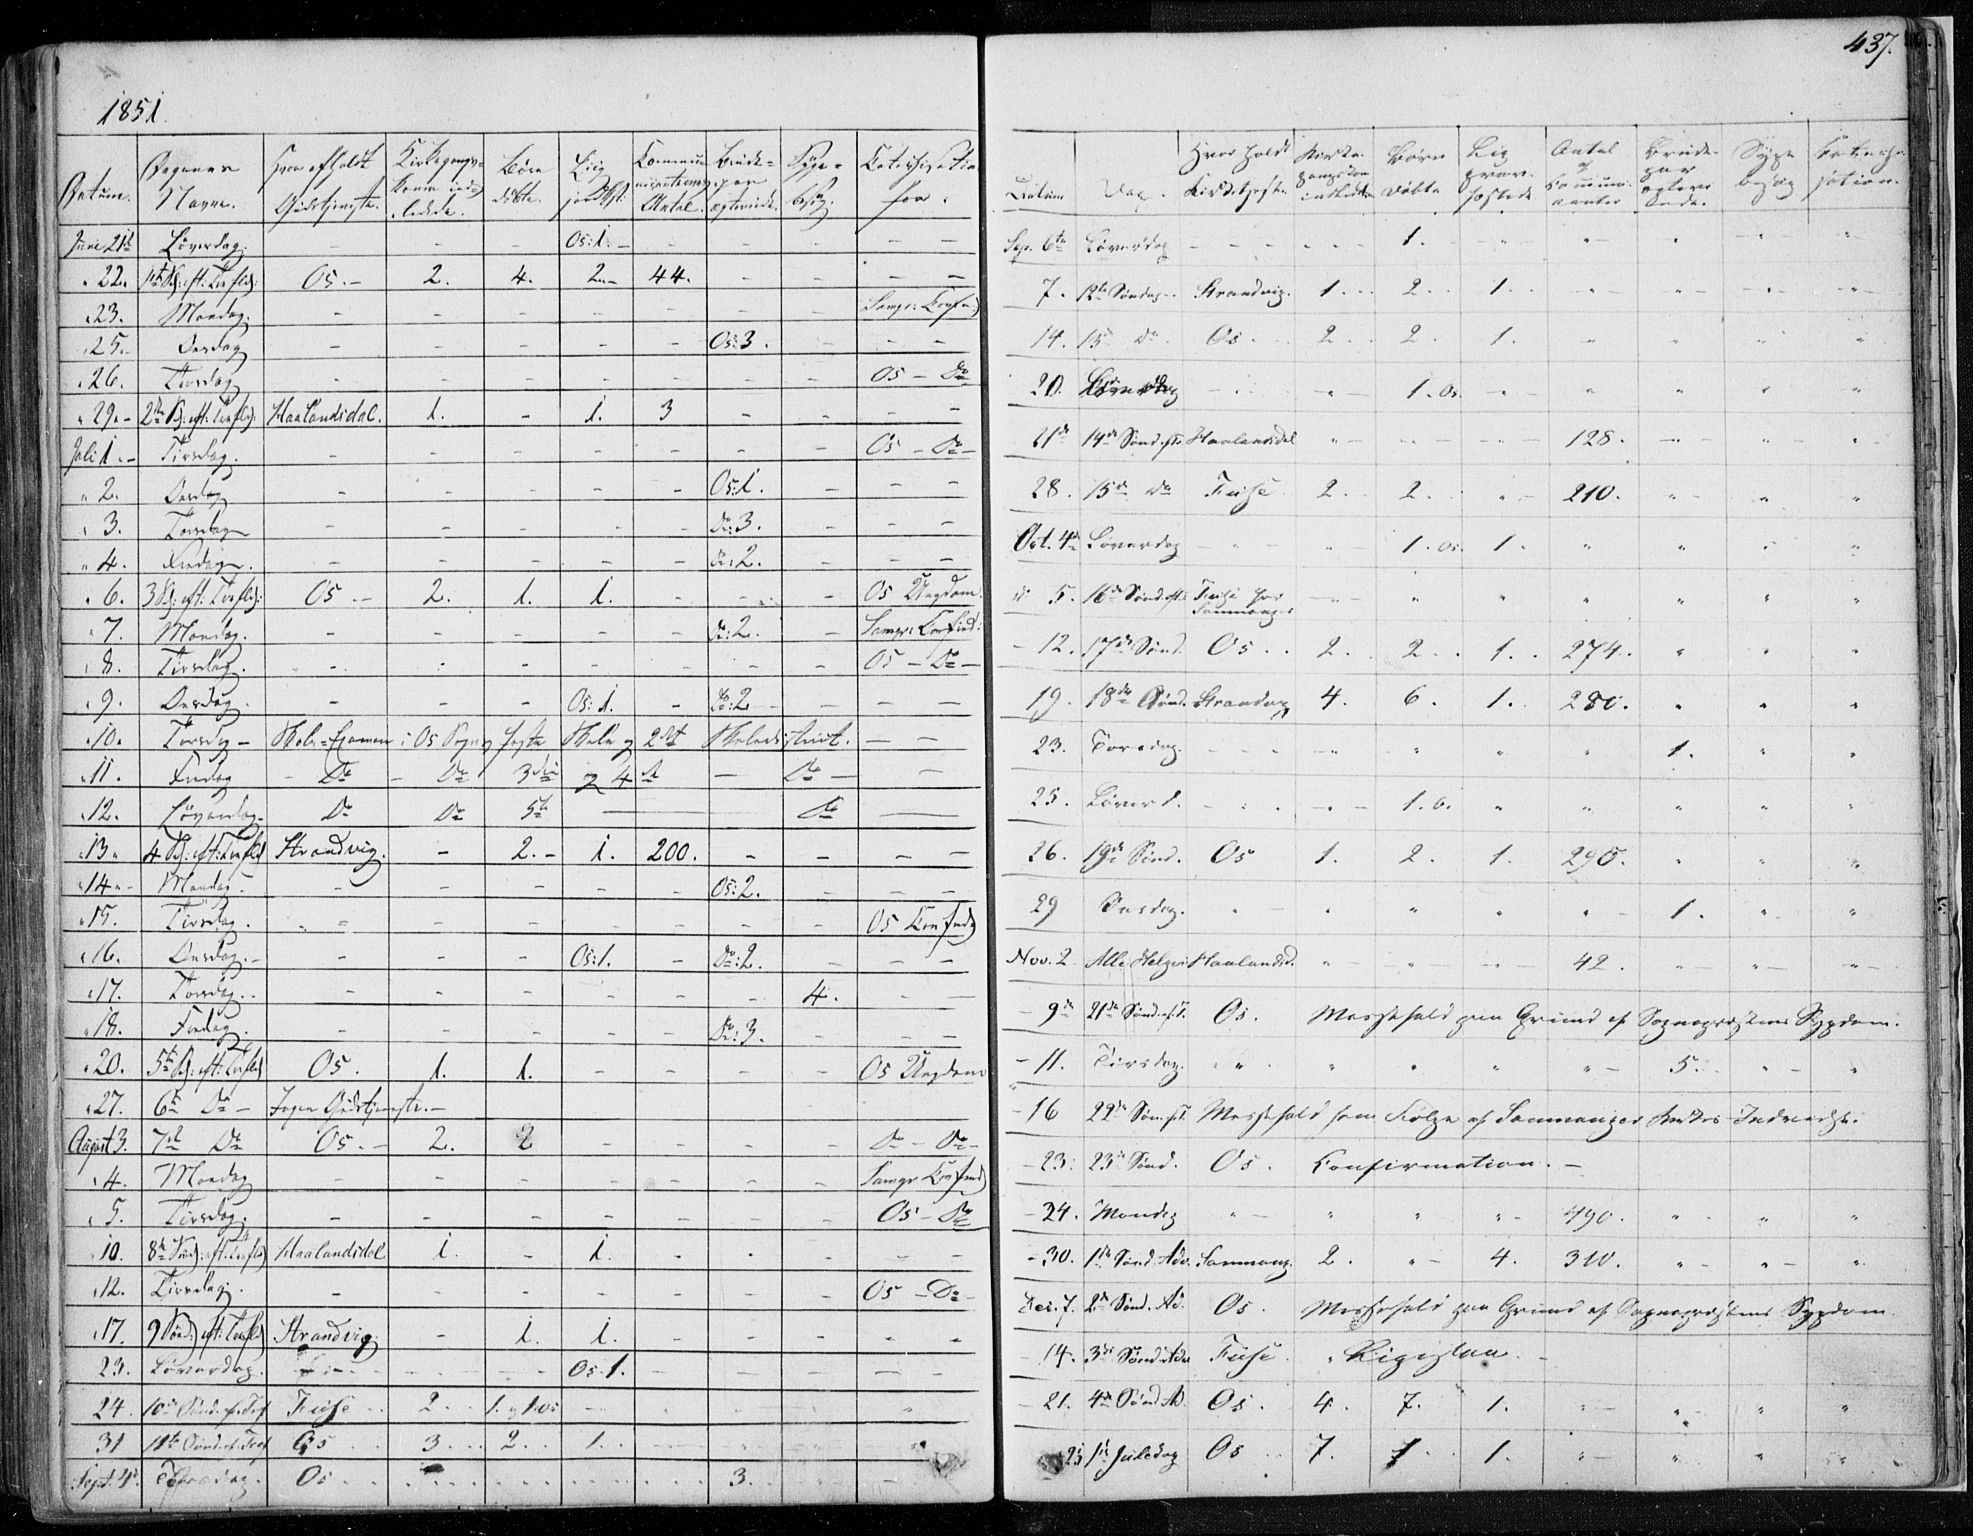 437.
1851.
Datum. Dagenes Navne. Hvor afholdt Gudstjeneste. Kirkegangs-Koner indledede. Børn døbte. Liig jordf. Communicanternes Antal. Brude-par egteviede. Syge-besøg. Catechisation for.
Juni 21de Løverdag. - - - Os: 1. - - - - -
" 22. 1ste S: eft: Trefld: Os. - 2. 4. 2. - 44. - - -
" 23. Mandag. - - - - - - -
" 25. Onsdag - - - - - Os: 3. - - -
" 26. Torsdag - - - - - - - Os - Do
" 29. - 2den S: eft: Trefld: Haalandsdal. 1. - 1. 3 - - - -
Juli 1. - Tirsdag. - - - - - - - Os - Do -
" 2. Onsdag - - - - - Os: 1. - - -
" 3. Torsdag - - - - - Do: 3. - - -
" 4. Fredag. - - - - - Do: 2. - - -
" 6. 3 S: eft: Trefld: Os - 2. 1. 1. - - - Os Ungdom.
" 7. Mandag. - - - - - Do: 2. -
" 8. Tirsdag. - - - - - - - Os - Do -
" 9. Onsdag. - - - Os: 1. - Do: 2 - - -
" 10. Torsdag - Skole-Examen i Os Sogns første Skole og 2det Skoledistrict. - -
" 11. Fredag - Do - Do 3die og 4de - Do - -
" 12. Løverdag. Do Do 5te - - Do -
" 13 " 4 S: eft: Trefld Strandvig. - 2. - 1. 200. - - - -
" 14 " - Mandag. - - - - - Os: 2. - - -
" 15. Tirsdag. - - - - - - - Os
" 16. Onsdag. - - - - Os: 1. - Do: 2. - - -
" 17. Torsdag. - - - - - - 4. - -
" 18. Fredag. - - - - - Do: 3. - - -
" 20. 5te S: eft: Trefld Os. 1. 1. - - - - Os Ungdom
" 27. 6te Do - Ingen Gudstjeneste. -
August 3. 7de Do Os. - 2. 2 - - - - Do - Do -
" 4. Mandag - - - - - - -
" 5. Tirsdag. - - - - - - - Os - Do
" 10. 8de Sønd: eft: Trefld Haalandsdal 1. - 1. - - - - -
" 12. Tirsdag. - - - - - - - Os - Do -
" 17. 9 Sønd: eft: Trefld Strandvig. - 1. 1. - - - - -
23. Løverdag. - - - Os: 1. - - - - -
24. 10de Sønd. ef. Tref Fuse 2. 1. og 1. Os - - -
31 11te Sønd. ef. Tref Os 3. 2. 1.
Sept. 4de Torsdag. Os 3.
Datum Dag. Hvor holdt Kirketjeneste. Kirkegangskon indledte Børn døbte Lig Antal af Communicanter Brudepar Syge besøg Catechisation.
Sep. 6te Løverdag - - - 1. " " " " "
7. 12te Søndag - Strandvig. 1. 2. 1. " " " " "
14. 13de Do Os 2. 2. 1. " " " " "
20. - - " 1. Os. - " " " "
21de 14de Sønd. eft. Haalandsdal " - - - 128. - " "
28. 15de Do Fuse 2. 2. " - 210. " - " "
Oct. 4de Løverdag - " - " - 1. Os. 1. " " " "
" 5. 16de Sønd. eft. Fuse for Sammanger - - " " " " " "
- 12. 17de Sønd. Os 2. 2. 1. 274. " " "
19. 18de Sønd. Strandvig 4. 6. 1. 280. " " "
23. Torsdag. - - - " " " " 1. " "
25. Løverd. - - - 1. O. " " " " "
26. 19de Sønd. Os 1. 2. 1. 290. " " "
29 Onsdag. " - " " " " - 1. " "
Nov. 2 Alle Helgen Haalandsd. " - " - - 42. " - " - " -
- 9de 21de Sønd. ef. T. Os. Messefald paa Grund af Sognepræstens Sygdom.
- 11. Tirsdag. " " " " " " - 5. " - "
- 16 22de Søn. ef. T. Messefald som Følge af Sammanger Kirkes Indvielse.
- 23. 23de Sønd. Os. Confirmation. -
- 24. Mandag " - " " " - 490. " - " "
- 30. 1ste Sønd. Adv. Sammang. 2. " - 4. 310. " - " - "
Dec. 7. 2den Sønd. Ad. Os. Messefald paa Grund af Sognepræstens Sygdom
- 14. 3die Sønd. Adv Fuse. " Ligesaa. -
- 21. 4de Sønd. Ad. Os. 4. 7. 1. " - " - " "
25 1ste Juledag Os 7. 1. 1. " - " " "